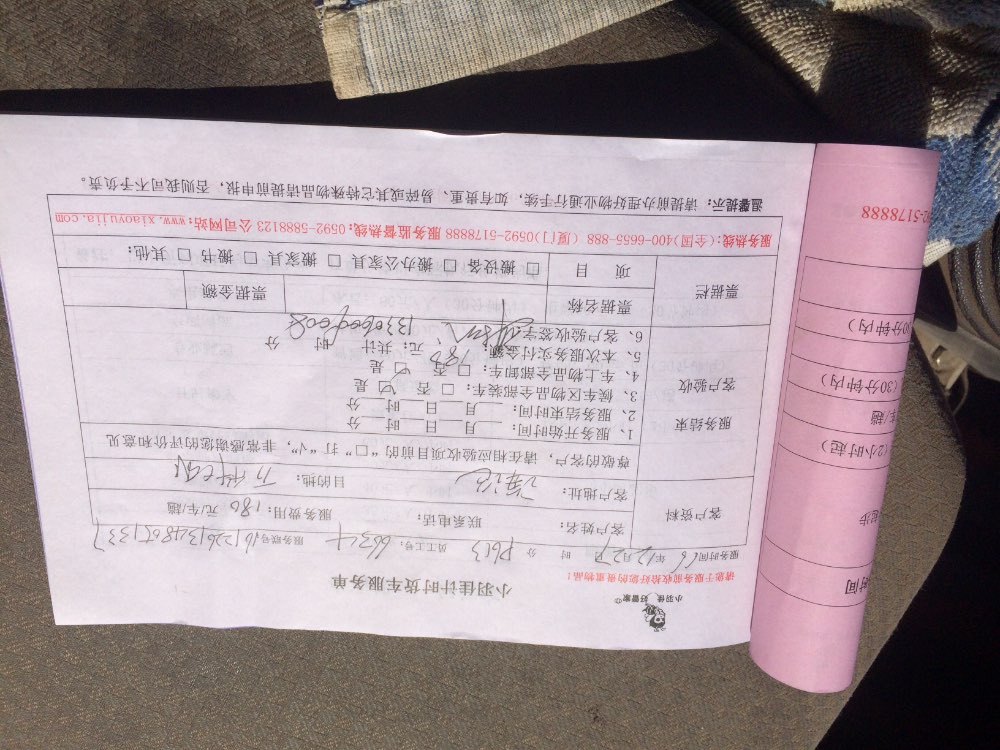 小羽佳 好管家
小羽佳计时货车服务单
请您于服务前收拾好您的贵重物品!
服务时间:16年12月27日 时 分 员工工号:6634 服务账号
客户资料
客户姓名: 联系电话: 服务费用:180 元/车/趟
客户地址: 目的地:
服务结束
客户验收
尊敬的客户,请在相应验收项目前的“□”打“√”,非常感谢您的评价和意见
1、服务开始时间: 月 日 时 分
2、服务结束时间: 月 日 时 分
3、候车区物品全部装车:□ 否 ☑ 是
4、车上物品全部卸车:□ 否 ☑ 是
5、本次服务实付金额:180 元;共计 时 分
6、客户验收签字:
票据栏
票据名称 票据金额
项 目 □ 搬设备 □ 搬办公家具 □ 搬家具 □ 搬书 □ 其他:
服务热线:(全国)400-6655-888 (厦门)0592-5178888 服务监督热线:0592-5888123 公司网站:www.xiaoyujia.com
温馨提示:请提前办理好物业通行手续,如有贵重、易碎或其它特殊物品请提前申报,否则我司不予负责。
时间
起步
(2小时起)
车/趟
(30分钟内)
30分钟内)
92-5178888